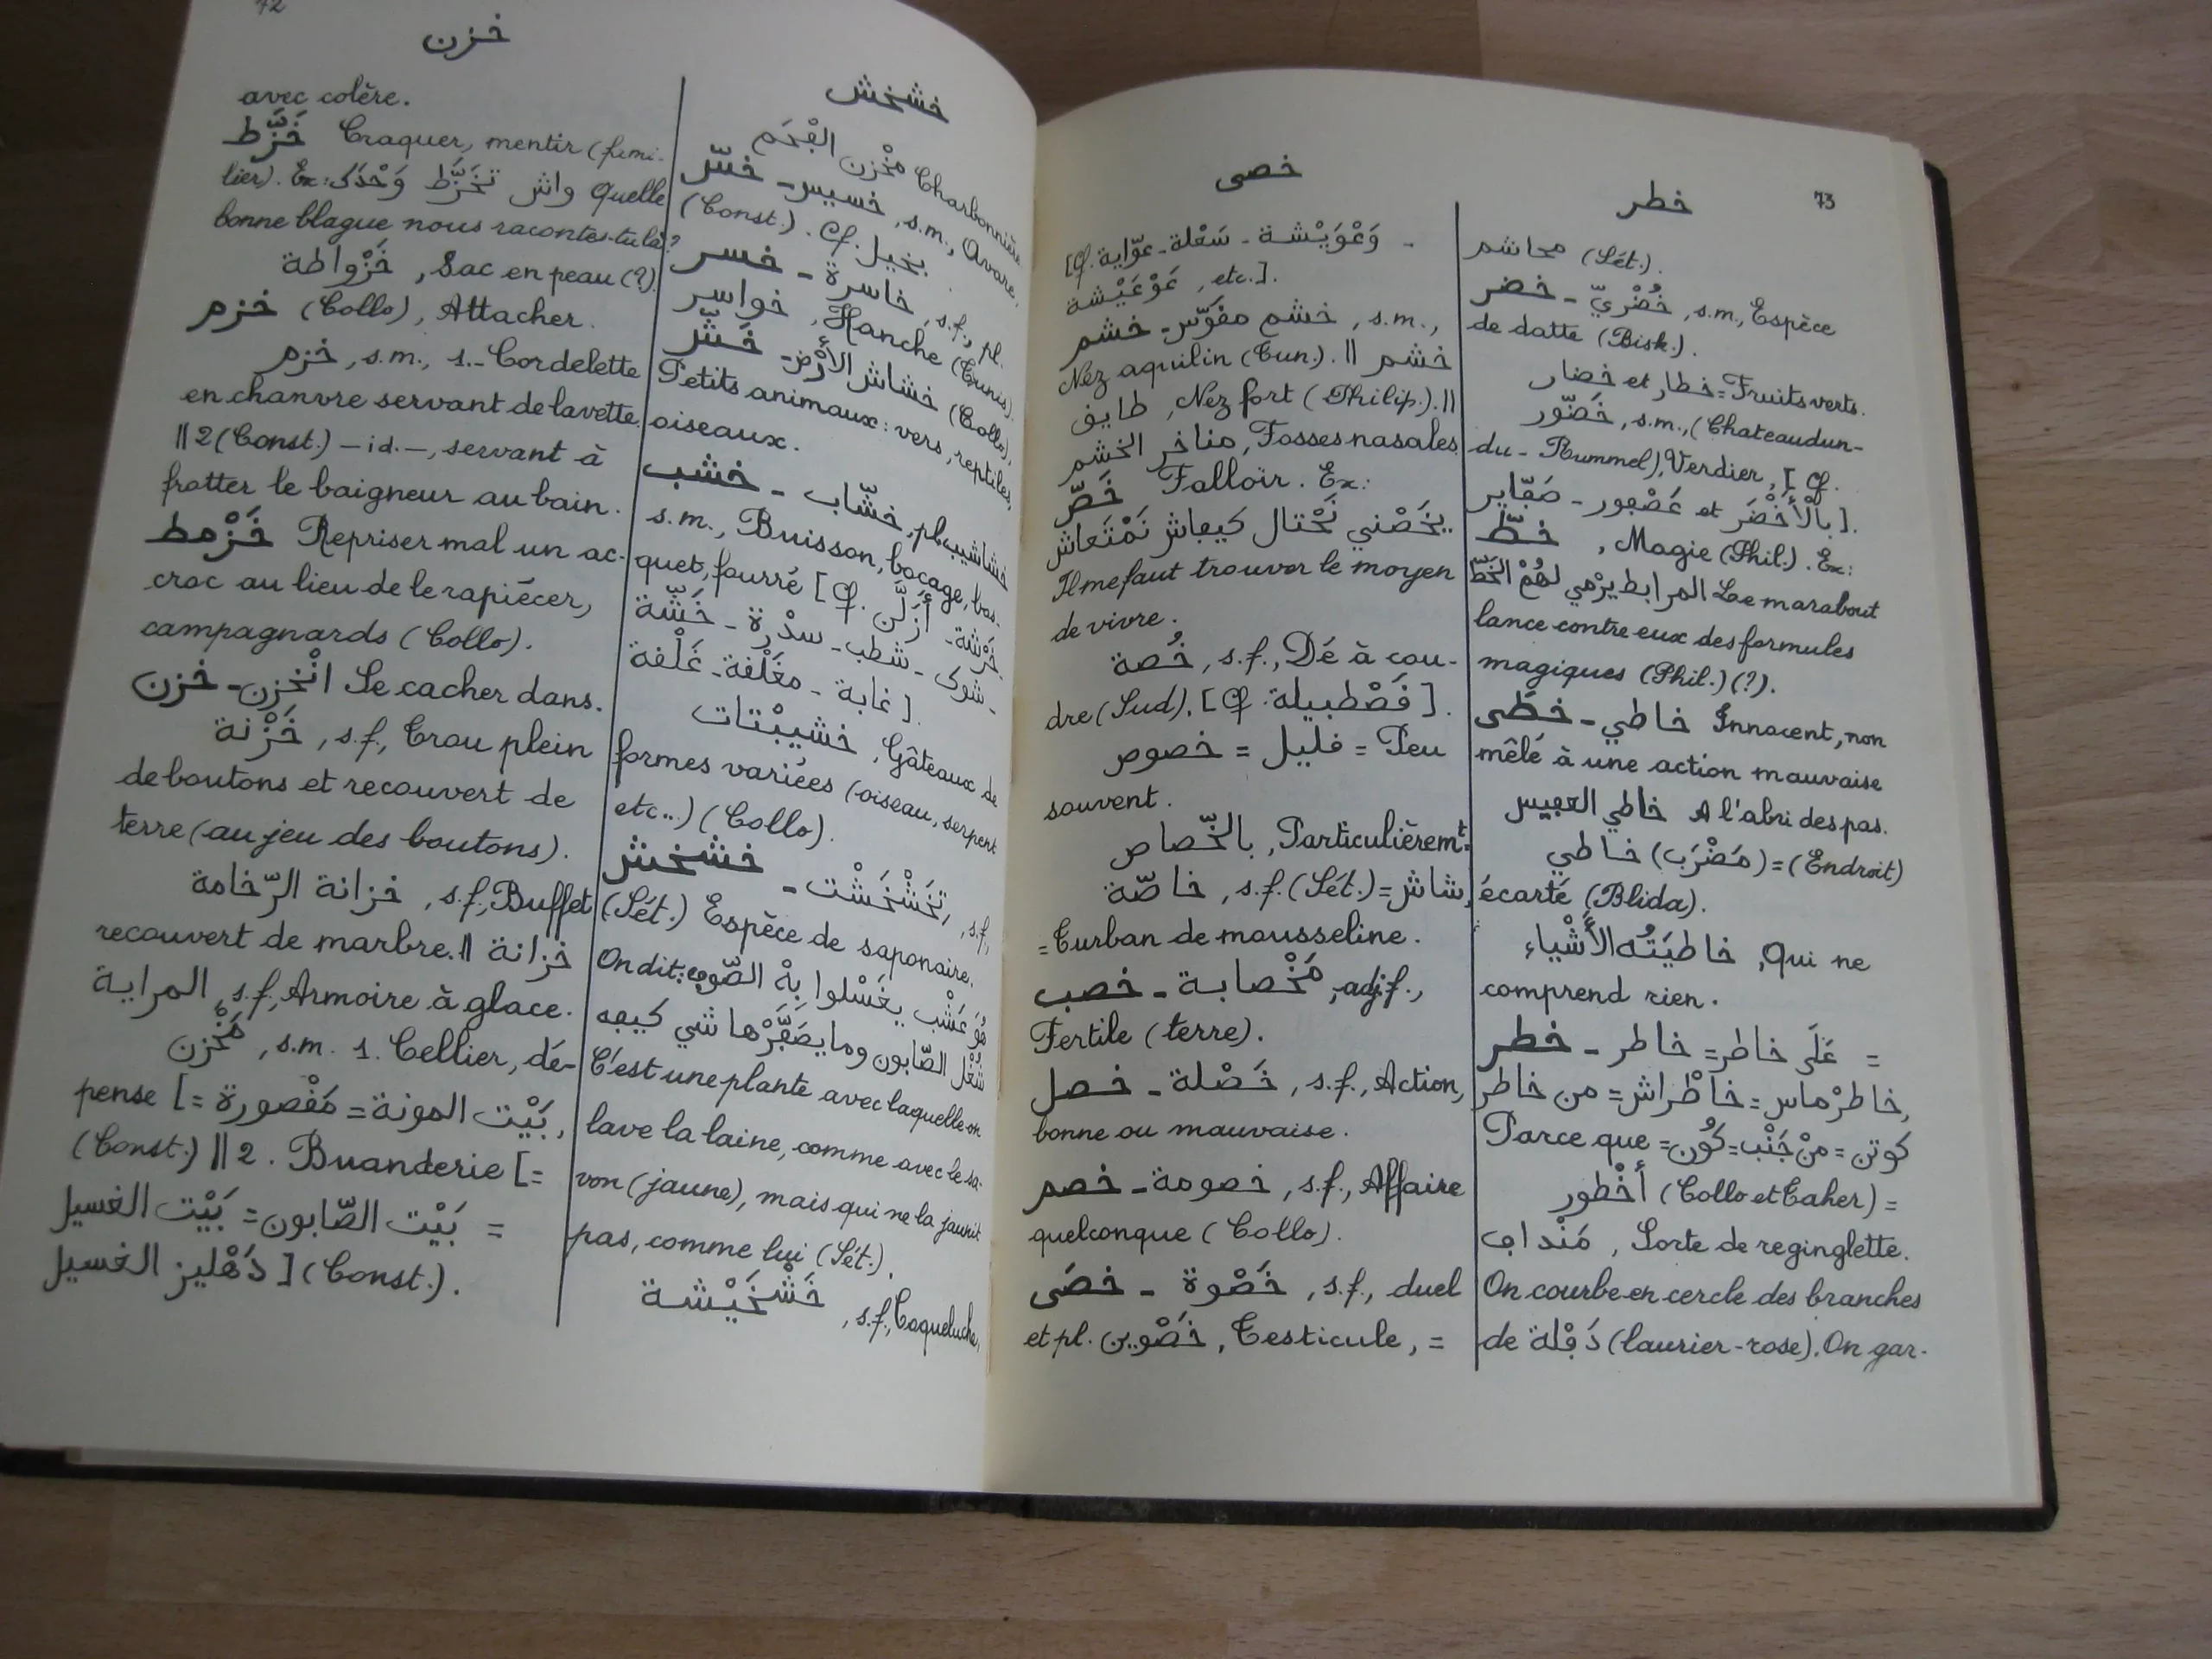 72
خزن
avec colère.
خَزَّط Craquer, mentir (fami-
lier). Ex: واش تْخَزَّط وَحْدَك Quelle
bonne blague nous racontes-tu là?
خَزْواطة, Sac en peau (?).
خزم (Collo), Attacher.
خزم, s.m., 1.- Cordelette
en chanvre servant de lavette.
|| 2 (Const.) – id. –, servant à
frotter le baigneur au bain.
خَزْمط Repriser mal un ac-
croc au lieu de le rapiécer,
campagnards (Collo).
خزن - انْخزن Se cacher dans.
خَزْنة, s.f., Trou plein
de boutons et recouvert de
terre (au jeu des boutons).
خزانة الرّخامة, s.f., Buffet
recouvert de marbre. || خزانة
المراية, s.f., Armoire à glace.
مَخْزن, s.m. 1. Cellier, dé-
pense [= بَيْت المونة = مَڧْصورة,
(Const.) || 2. Buanderie [=
بَيْت الصّابون = بَيْت الغسيل =
دَهْليز الغسيل] (Const.).
خشخش
مخْزن الڢْحَم Charbonnière.
خسّ - خسيس, s.m., Avare,
(Const.). Cf. بخيل.
خسر - خاسرة, s.f., pl.
خواسر, Hanche (Tunis).
خَشّ - خشاش الأرْض (Collo),
Petits animaux: vers, reptiles,
oiseaux.
خشب - خشّاب, pl. خشاشيب
s.m., Buisson, bocage, bos-
quet, fourré [Cf. أَزَلَّن
خَرْشة - شوك - شَطب - سدْرة - خَشّة
غابة - مغَلْڢة - غَلْڢة].
خشيبْتات, Gâteaux de
formes variées (oiseau, serpent
etc...) (Collo).
خشخش - تخَشْخَشْت, s.f.,
(Sét.) Espèce de saponaire.
On dit: هُوَ عَشْب يغَسْلوا بِهْ الصّوڢ
شُغْل الصّابون وما يصَڢَّرْها شي كيڢه
C'est une plante avec laquelle on
lave la laine, comme avec le sa-
von (jaune), mais qui ne la jaunit
pas, comme lui (Sét.).
خَشْخَيْشة, s.f., Coqueluche,
خصى
[Cf. وَعْوَيْشة - سَعْلة - عوّاية -
عَوْعَيْشة, etc.].
خشم - خشم مڧوّس, s.m.,
Nez aquilin (Tun.). || خشم
طايڢ, Nez fort (Philip.). ||
مناخر الخشم, Fosses nasales.
خَصّ Falloir. Ex:
يخَصْني نَحْتال كيڢاش نَمْتَعاش
Il me faut trouver le moyen
de vivre.
خُصة, s.f., Dé à cou-
dre (Sud). [Cf: ڧَصْطبيلة].
خصوص = ڧليل = Peu
souvent.
بالخّصاص, Particulièremt:
خاصّة, s.f. (Sét.) = شاش,
= Turban de mousseline.
خصب - مَخْصابة, adj. f.,
Fertile (terre).
خصل - خَصْلة, s.f., Action,
bonne ou mauvaise.
خصم - خصومة, s.f., Affaire
quelconque (Collo).
خصَى - خَصْوة, s.f., duel
et pl. خَصْوين, Testicule, =
خطر 73
محاشم (Sét.).
خضر - خُضْريّ, s.m., Espèce
de datte (Bisk.).
خضار et خطار = Fruits verts.
خَضّور, s.m., (Chateaudun-
du-Rummel), Verdier, [Cf.
بالْأَخْضَر et عَصْڢور - صَڢّاير].
خطّ, Magie (Phil.). Ex:
المرابط يرْمي لهُمْ الخَطّ Le marabout
lance contre eux des formules
magiques (Phil.) (?).
خطَى - خاطي Innocent, non
mêlé à une action mauvaise
خاطي العڢيس A l'abri des pas.
خاطي (مَضْرَب) = (Endroit)
écarté (Blida).
خاطيَتُه الأَشْياء, Qui ne
comprend rien.
خطر - خاطر = عَلَى خاطر =
من خاطر = خاطْراش = خاطرْماس,
كوتن = منْ جَنْب = كَوُن = Parce que
أخْطور (Collo et Taher) =
مَنْداڢ, Sorte de reginglette.
On courbe en cercle des branches
de دَڢْلة (laurier-rose). On gar-